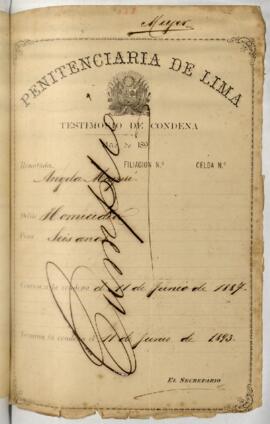 Mujer
PENITENCIARIA DE LIMA
TESTIMONIO DE CONDENA
Año de 189
Rematada, FILIACION N.º CELDA N.º
Angela
Delito Homicidio
Pena Seis años
Comienza la condena el 11 de Junio de 1887.
Termina la condena el 11 de Junio de 1893.
EL SECRETARIO
Cumplió